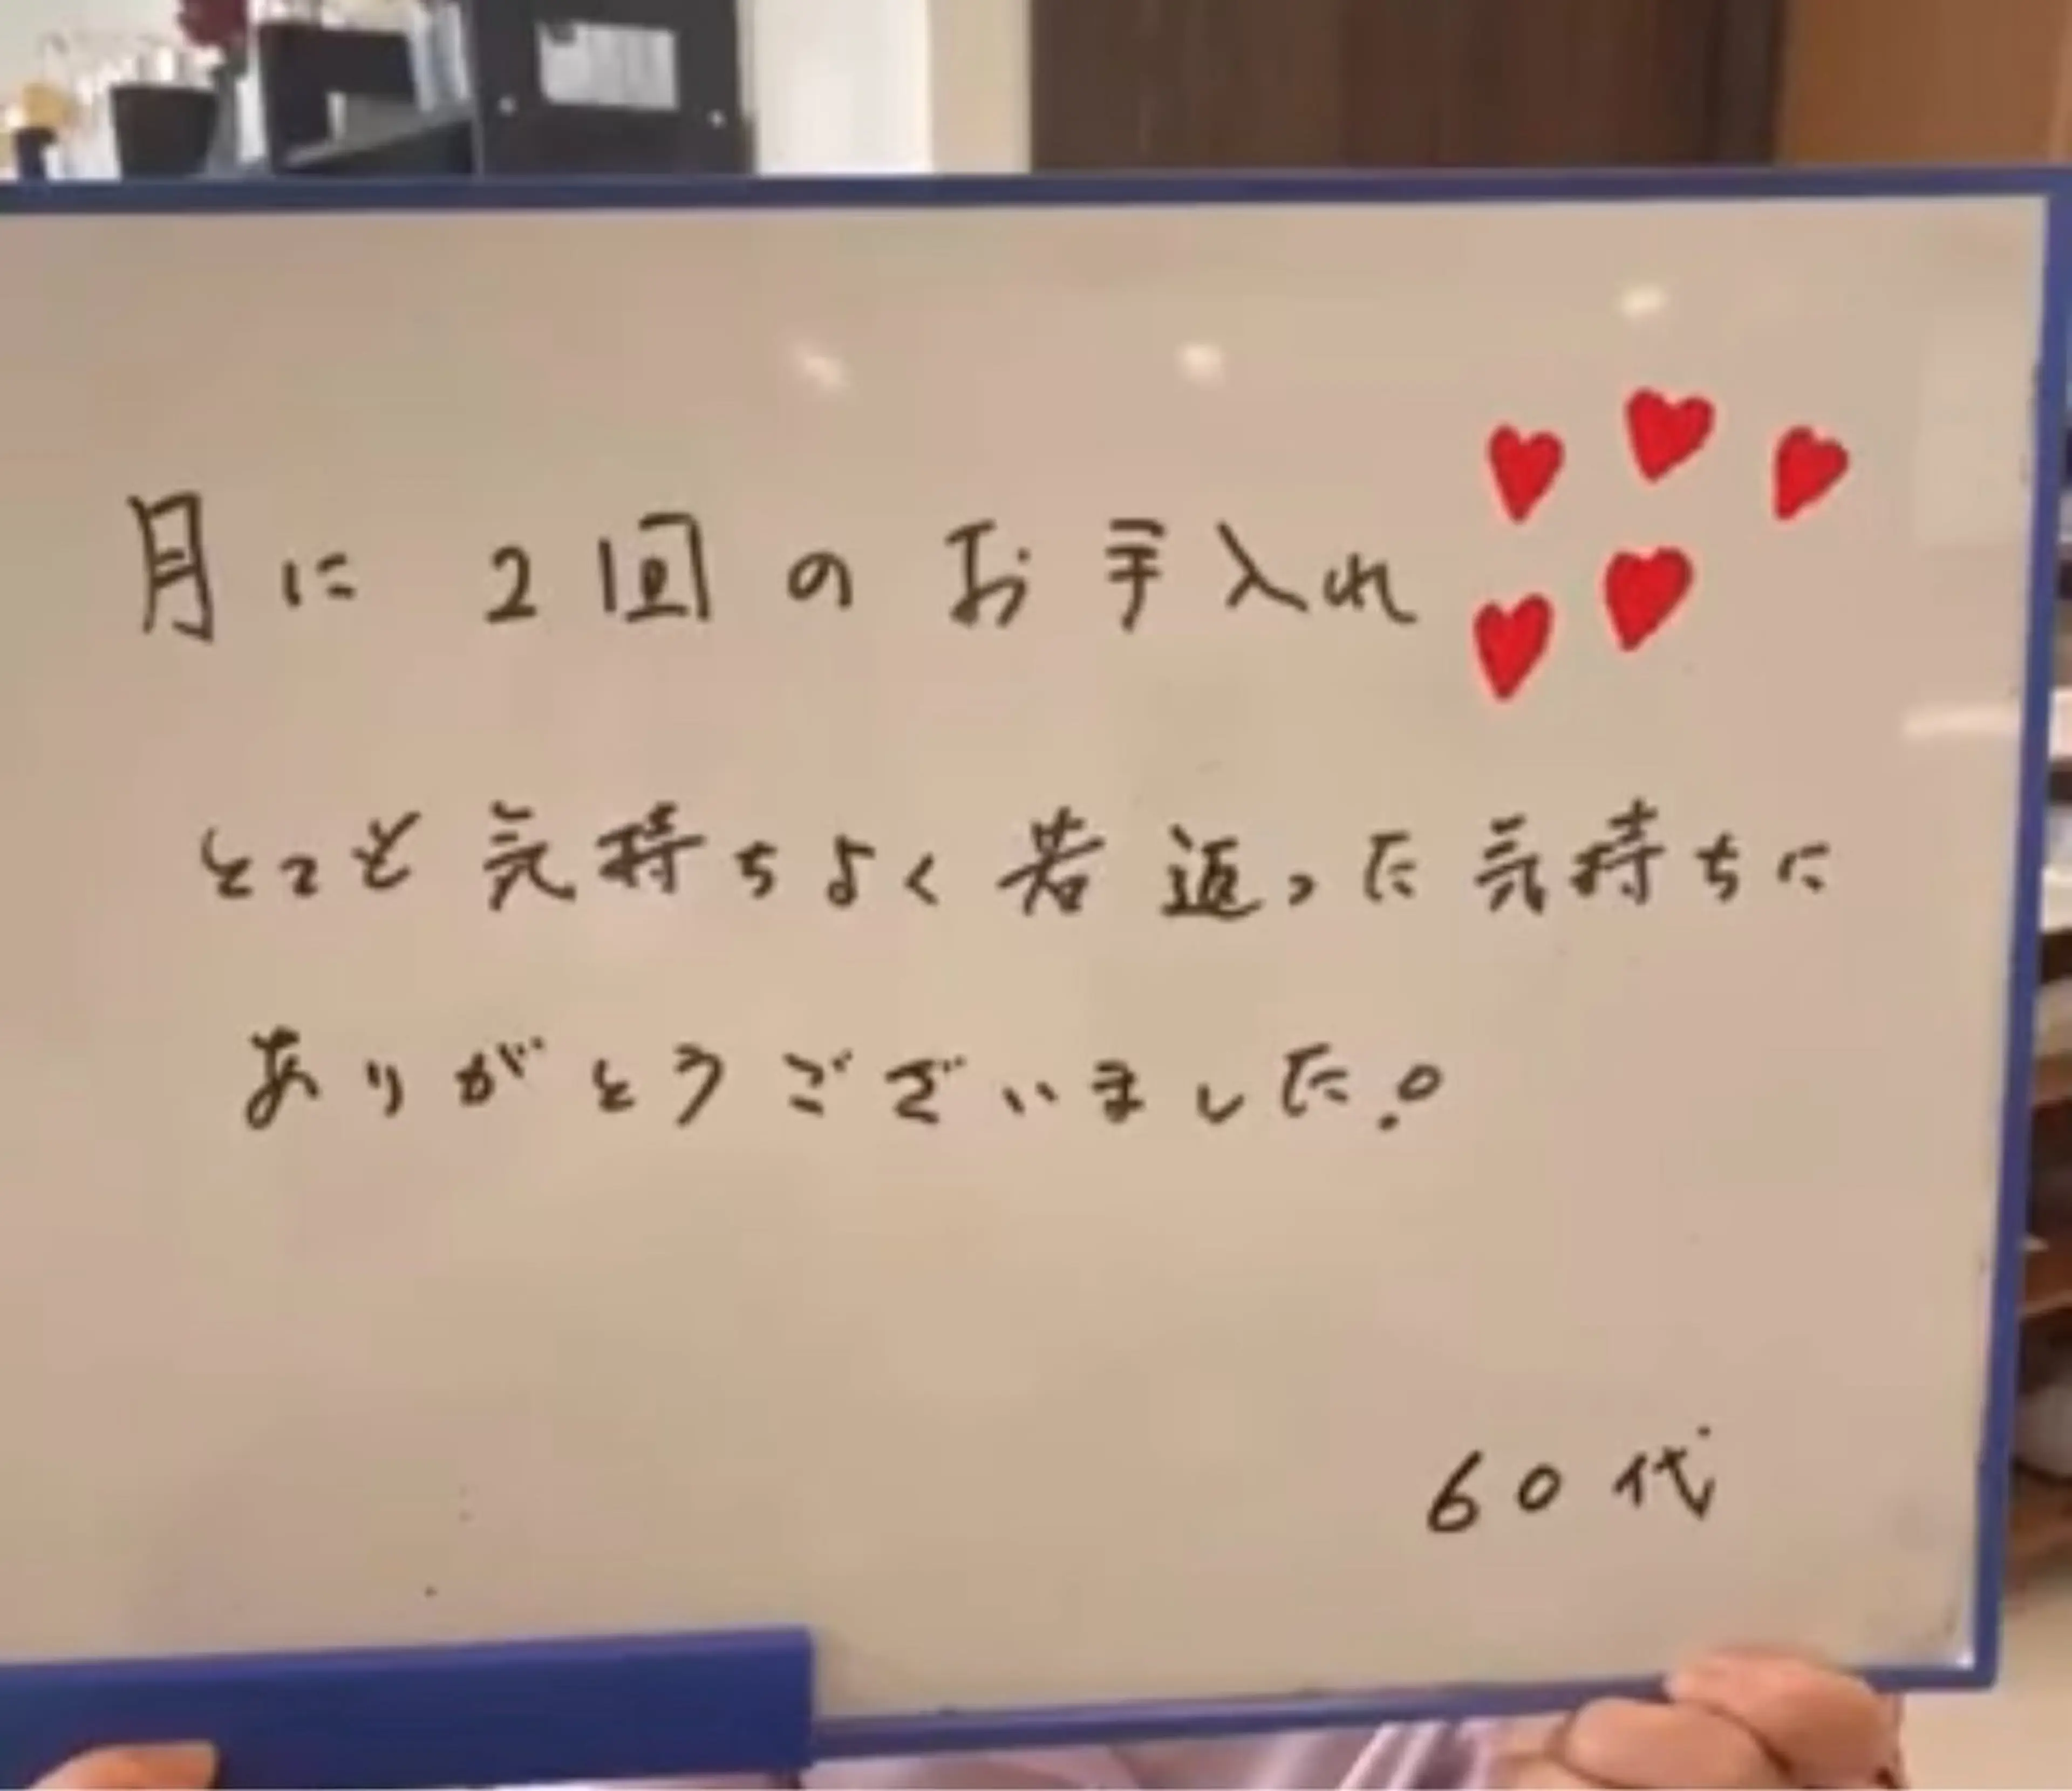 月に2回のお手入れ
とても気持ちよく若返った気持ちに
ありがとうございました。
60代